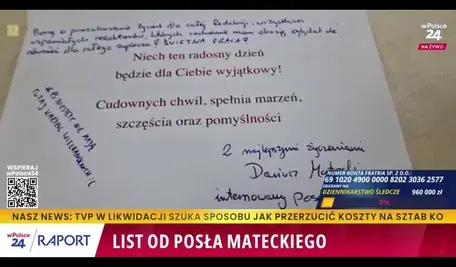 Proszę o przekazanie życzeń dla całej Redakcji, wszystkich
wspaniałych redaktorów, których codziennie mam okazję oglądać
również dla całego zespołu! ŚWIETNA PRACA!
Niech ten radosny dzień
będzie dla Ciebie wyjątkowy!
Cudownych chwil, spełnia marzeń,
szczęścia oraz pomyślności
NIESTETY NIE MAJĄ
TUTAJ KARTEK WIELKANOCNYCH
Z najlepszymi życzeniami
Dariusz Matecki
internowany
12
wPolsce
24
NA ŻYWO
WSPIERAJ
wPolsce24
NUMER KONTA FRATRIA SP. Z O.O.:
69 1020 4900 0000 8202 3036 2577
ZBIERAMY NA
DZIENNIKARSTWO ŚLEDCZE 960 000 zł
NASZ NEWS: TVP W LIKWIDACJI SZUKA SPOSOBU JAK PRZERZUCIĆ KOSZTY NA SZTAB KO
wPolsce
24 RAPORT
LIST OD POSŁA MATECKIEGO